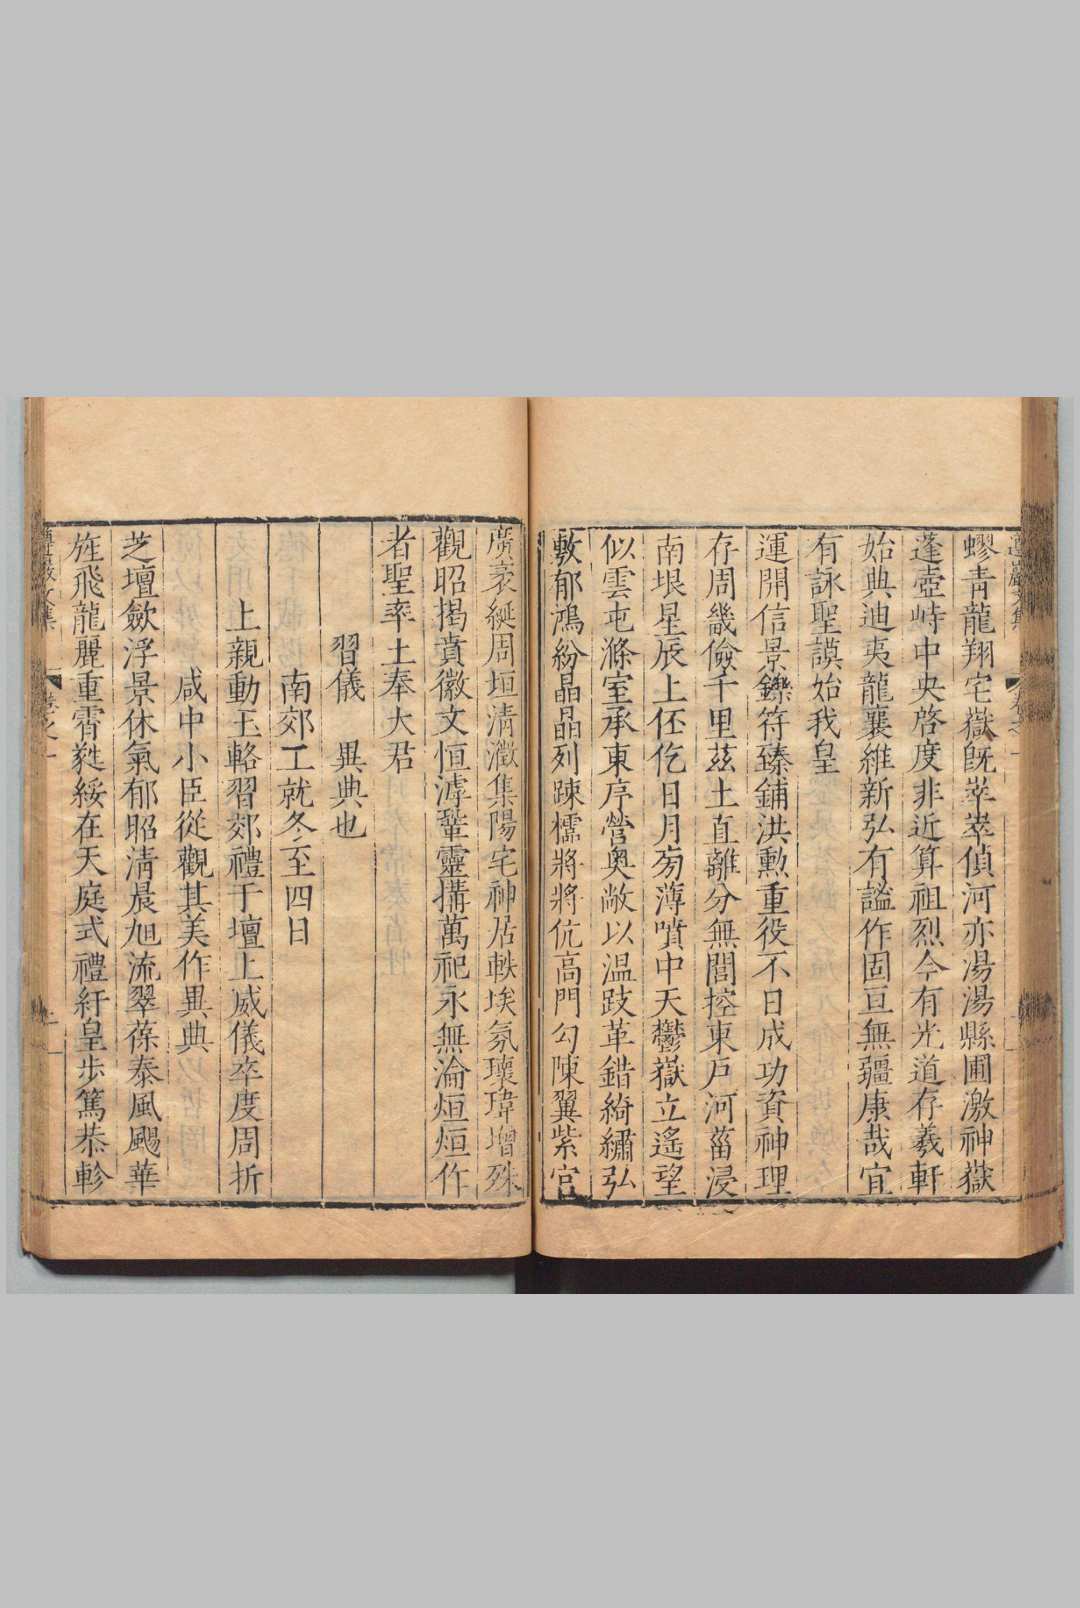 蟉青龍翔宅嶽旣崒崒偵河亦湯湯縣圃激神嶽
蓬壺峙中央啓度非近算祖烈今有光道存羲軒
始典迪夷龍襄維新弘有謐作固亘無疆康哉宜
有詠聖謨始我皇
運開信景鑠符臻鋪洪勳重役不日成功資神理
存周畿儉千里茲土直離分無閭控東戶河菑浸
南垠星辰上伾仡日月旁薄噴中天鬱嶽立遙望
似雲屯滌室承東序營奥敞以温跂革錯綺繡弘
敷郁鴻紛晶晶列踈櫺將將伉高門勾陳翼紫宫
廣袤綖周垣清澂集陽宅神居軼埃氛瓌瑋增殊
觀昭揭賁徽文恒滹鞏靈搆萬祀永無淪烜烜作
者聖率土奉大君
習儀 異典也
南郊工就冬至四日
上親動玉輅習郊禮于壇上威儀卒度周折
咸中小臣從觀其美作異典
芝壇歛浮景休氣郁昭清晨旭流翠葆泰風颺華
旌飛龍麗重霄蕤綏在天庭式禮紆皇步篤恭軫